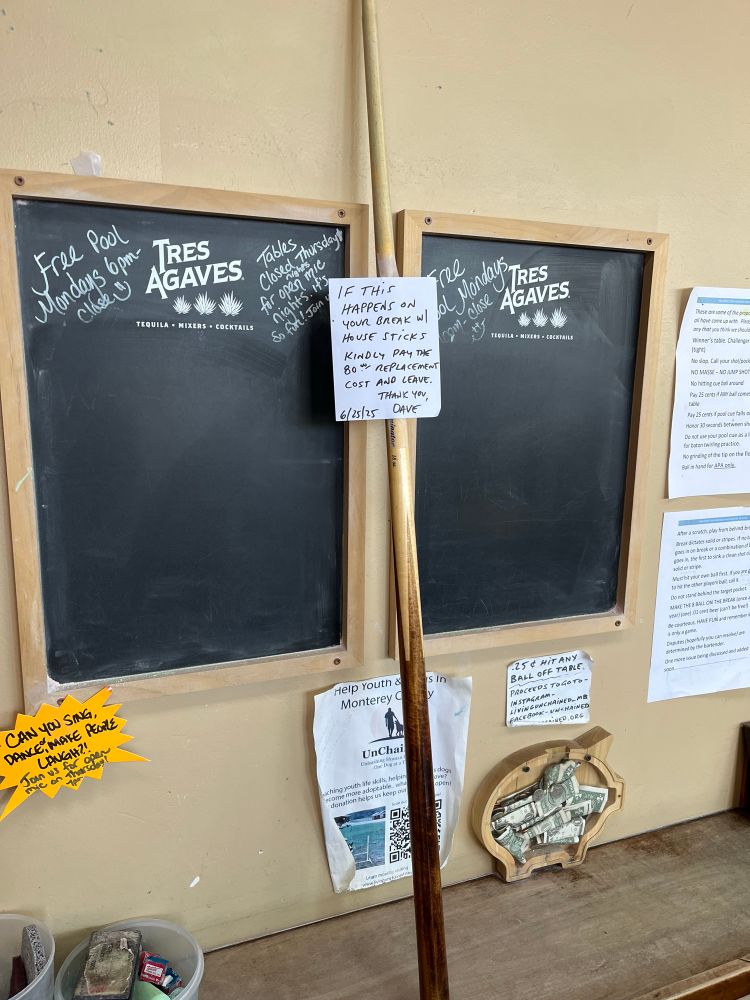 Free Pool
Mondays 6pm
close
TRES
AGAVES
TEQUILA • MIXERS • COCKTAILS
Tables
Closed Thursday
nights
for open mic
nights. it's
so fun! Join us
Free
Mondays
close
TRES
AGAVES
TEQUILA • MIXERS • COCKTAILS
IF THIS
HAPPENS ON
YOUR BREAK W/
HOUSE STICKS
KINDLY PAY THE
80 REPLACEMENT
COST AND LEAVE.
THANK YOU,
6/25/25 DAVE
These are some of the
all have come up with. Please
any that you think we should
Winner's table. Challenger
(tight)
No slop. Call your shot/pocket
NO MASSE – NO JUMP SHOT
No hitting cue ball around
Pay 25 cents if ANY ball comes
table
Pay 25 cents if pool cue falls
Honor 30 seconds between
Do not use your pool cue as a
for baton twirling practice.
No grinding of the tip on the
Ball in hand for APA only.
After a scratch, play from behind
Break dictates solid or stripes. If no
goes in on break or a combination of
goes in, the first to sink a clean shot
solid or stripe.
Must hit your own ball first. If you
to hit the other players ball, call it.
Do not stand behind the target pocket.
MAKE THE 8 BALL ON THE BREAK (once
year) (one) .01 cent beer (can't be free!)
Be courteous. HAVE FUN and remember
is only a game.
Disputes (hopefully you can resolve) are
determined by the bartender.
One more issue being discussed and added
soon
.25¢ HIT ANY
BALL OFF TABLE.
PROCEEDS TO GO TO -
INSTAGRAM -
LIVINGUNCHAINED_MB
FACEBOOK - UNCHAINED
.ORG
CAN YOU SING,
DANCE, or MAKE PEOPLE
LAUGH?!
Join us for open
mic on Thursday!
7pm
Help Youth & in
Monterey County
UnChai
Unleashing Human
One Dog at a
youth life skills, helping dogs
become more adoptable.
donation helps us keep our